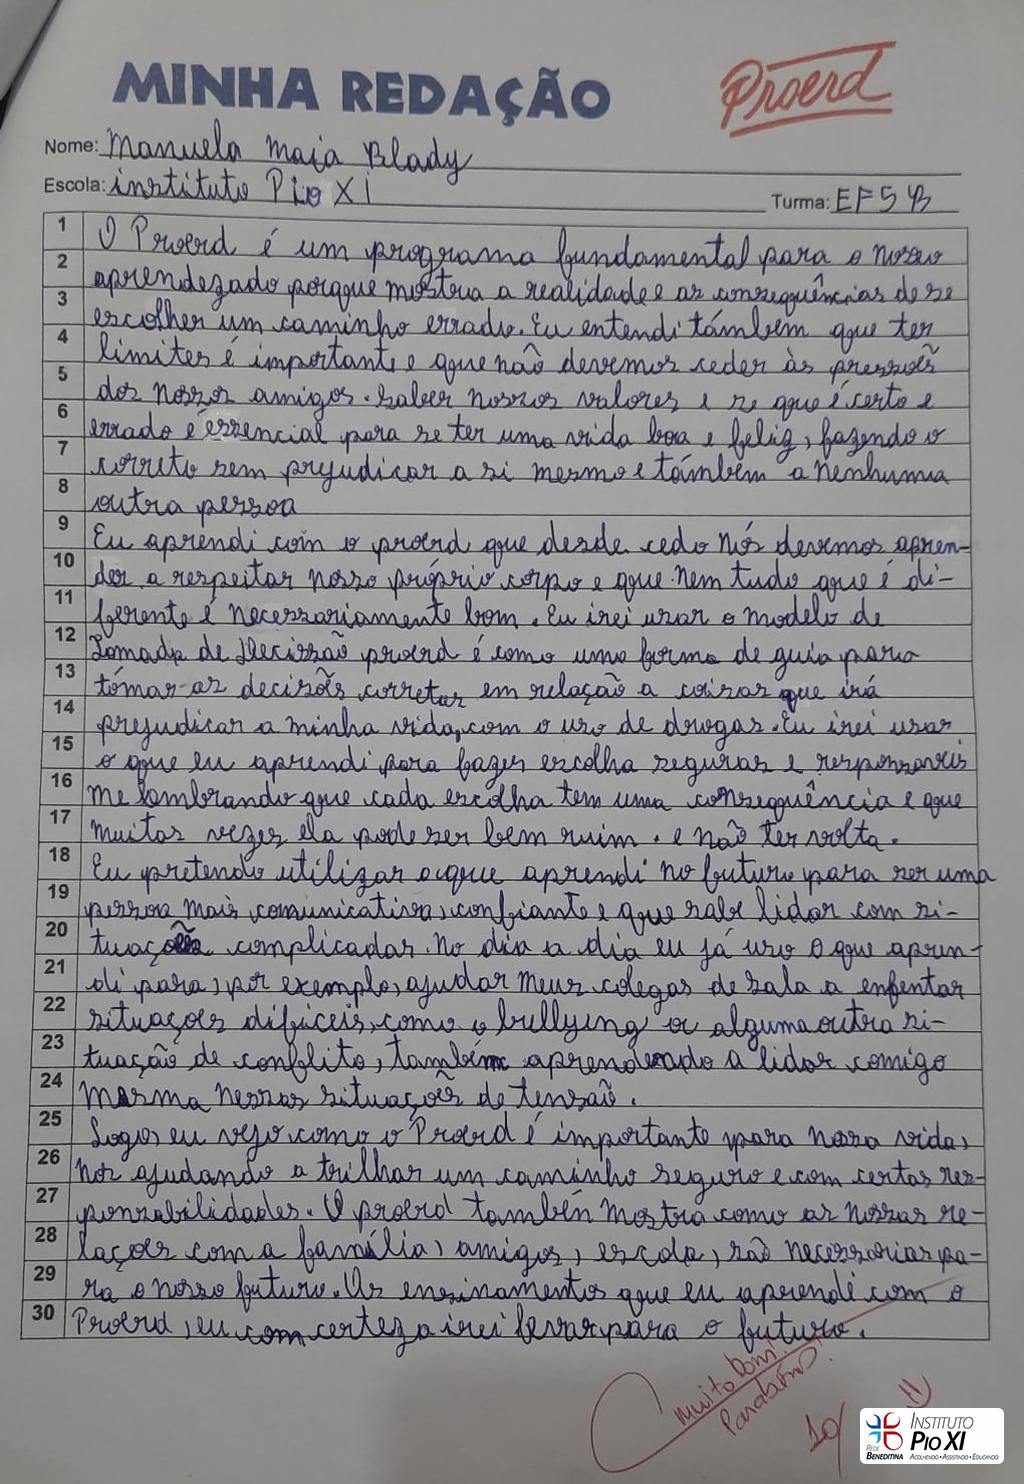 MINHA REDAÇÃO
Proerd
Nome: Manuela Maia Blady
Escola: instituto Pio XI
Turma: EF5B
1 O Proerd é um programa fundamental para o nosso
2 aprendezado porque mostra a realidade e as consequências de se
3 escolher um caminho errado. Eu entendi támbem que ter
4 limites é importante e que não devemos ceder às pressoẽs
5 dos nossos amigos. saber nossos valores e se que é certo e
6 errado é essencial para se ter uma vida boa e feliz, fazendo o
7 correto sem prejudicar a si mesmo e támbem a nenhuma
8 outra pessoa
9 Eu aprendi com o proerd que desde cedo nós devemos apren-
10 der a respeitar nosso próprio corpo e que nem tudo que é di-
11 ferente é necessariamente bom. Eu irei usar o modelo de
12 Tomada de Decissão proerd é como uma forma de guia para
13 tómar as decisões corretas em relação a coisas que irá
14 prejudicar a minha vida, com o uso de drogas. Eu irei usar
15 o que eu aprendi para fazer escolha seguras e responsaveis
16 me lombrando que cada escolha tem uma consequência e que
17 muitas vezes ela pode ser bem ruim. e não ter volta.
18 Eu pretendo utilizar o que aprendi no futuro para ser uma
19 pessoa mais comunicativa, confiante e que sabe lidar com si-
20 tuações complicadas. No dia a dia eu já uso o que apren-
21 di para, por exemplo, ajudar meus colegas de sala a enfentar
22 situações difíceis, como o bullying ou alguma outra si-
23 tuação de conflito, também aprendendo a lidar comigo
24 mesma nessas situações de tensão.
25 Logo, eu vejo como o Proerd é importante para nossa vida,
26 nos ajudando a trilhar um caminho seguro e com certas res-
27 ponsabilidades. O proerd tambén mostra como as nossas re-
28 lações com a família, amigos, escola, são necessarias pa-
29 ra o nosso futuro. Os ensinamentos que eu aprendi com o
30 Proerd, eu com certeza irei levar para o futuro.
Muito bom!
Parabéns!
10
INSTITUTO
PIO XI
REDE BENEDITINA
ACOLHENDO • ASSISTINDO • EDUCANDO